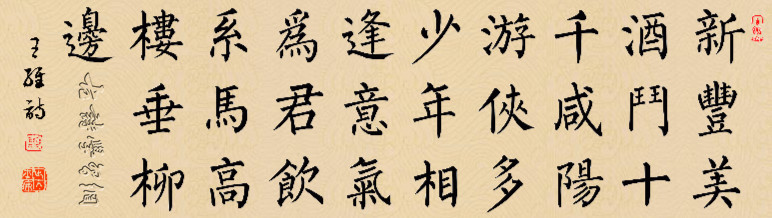 新豐美
酒鬥十
千咸陽
游俠多
少年相
逢意氣
爲君飲
系馬高
樓垂柳
邊
王維詩